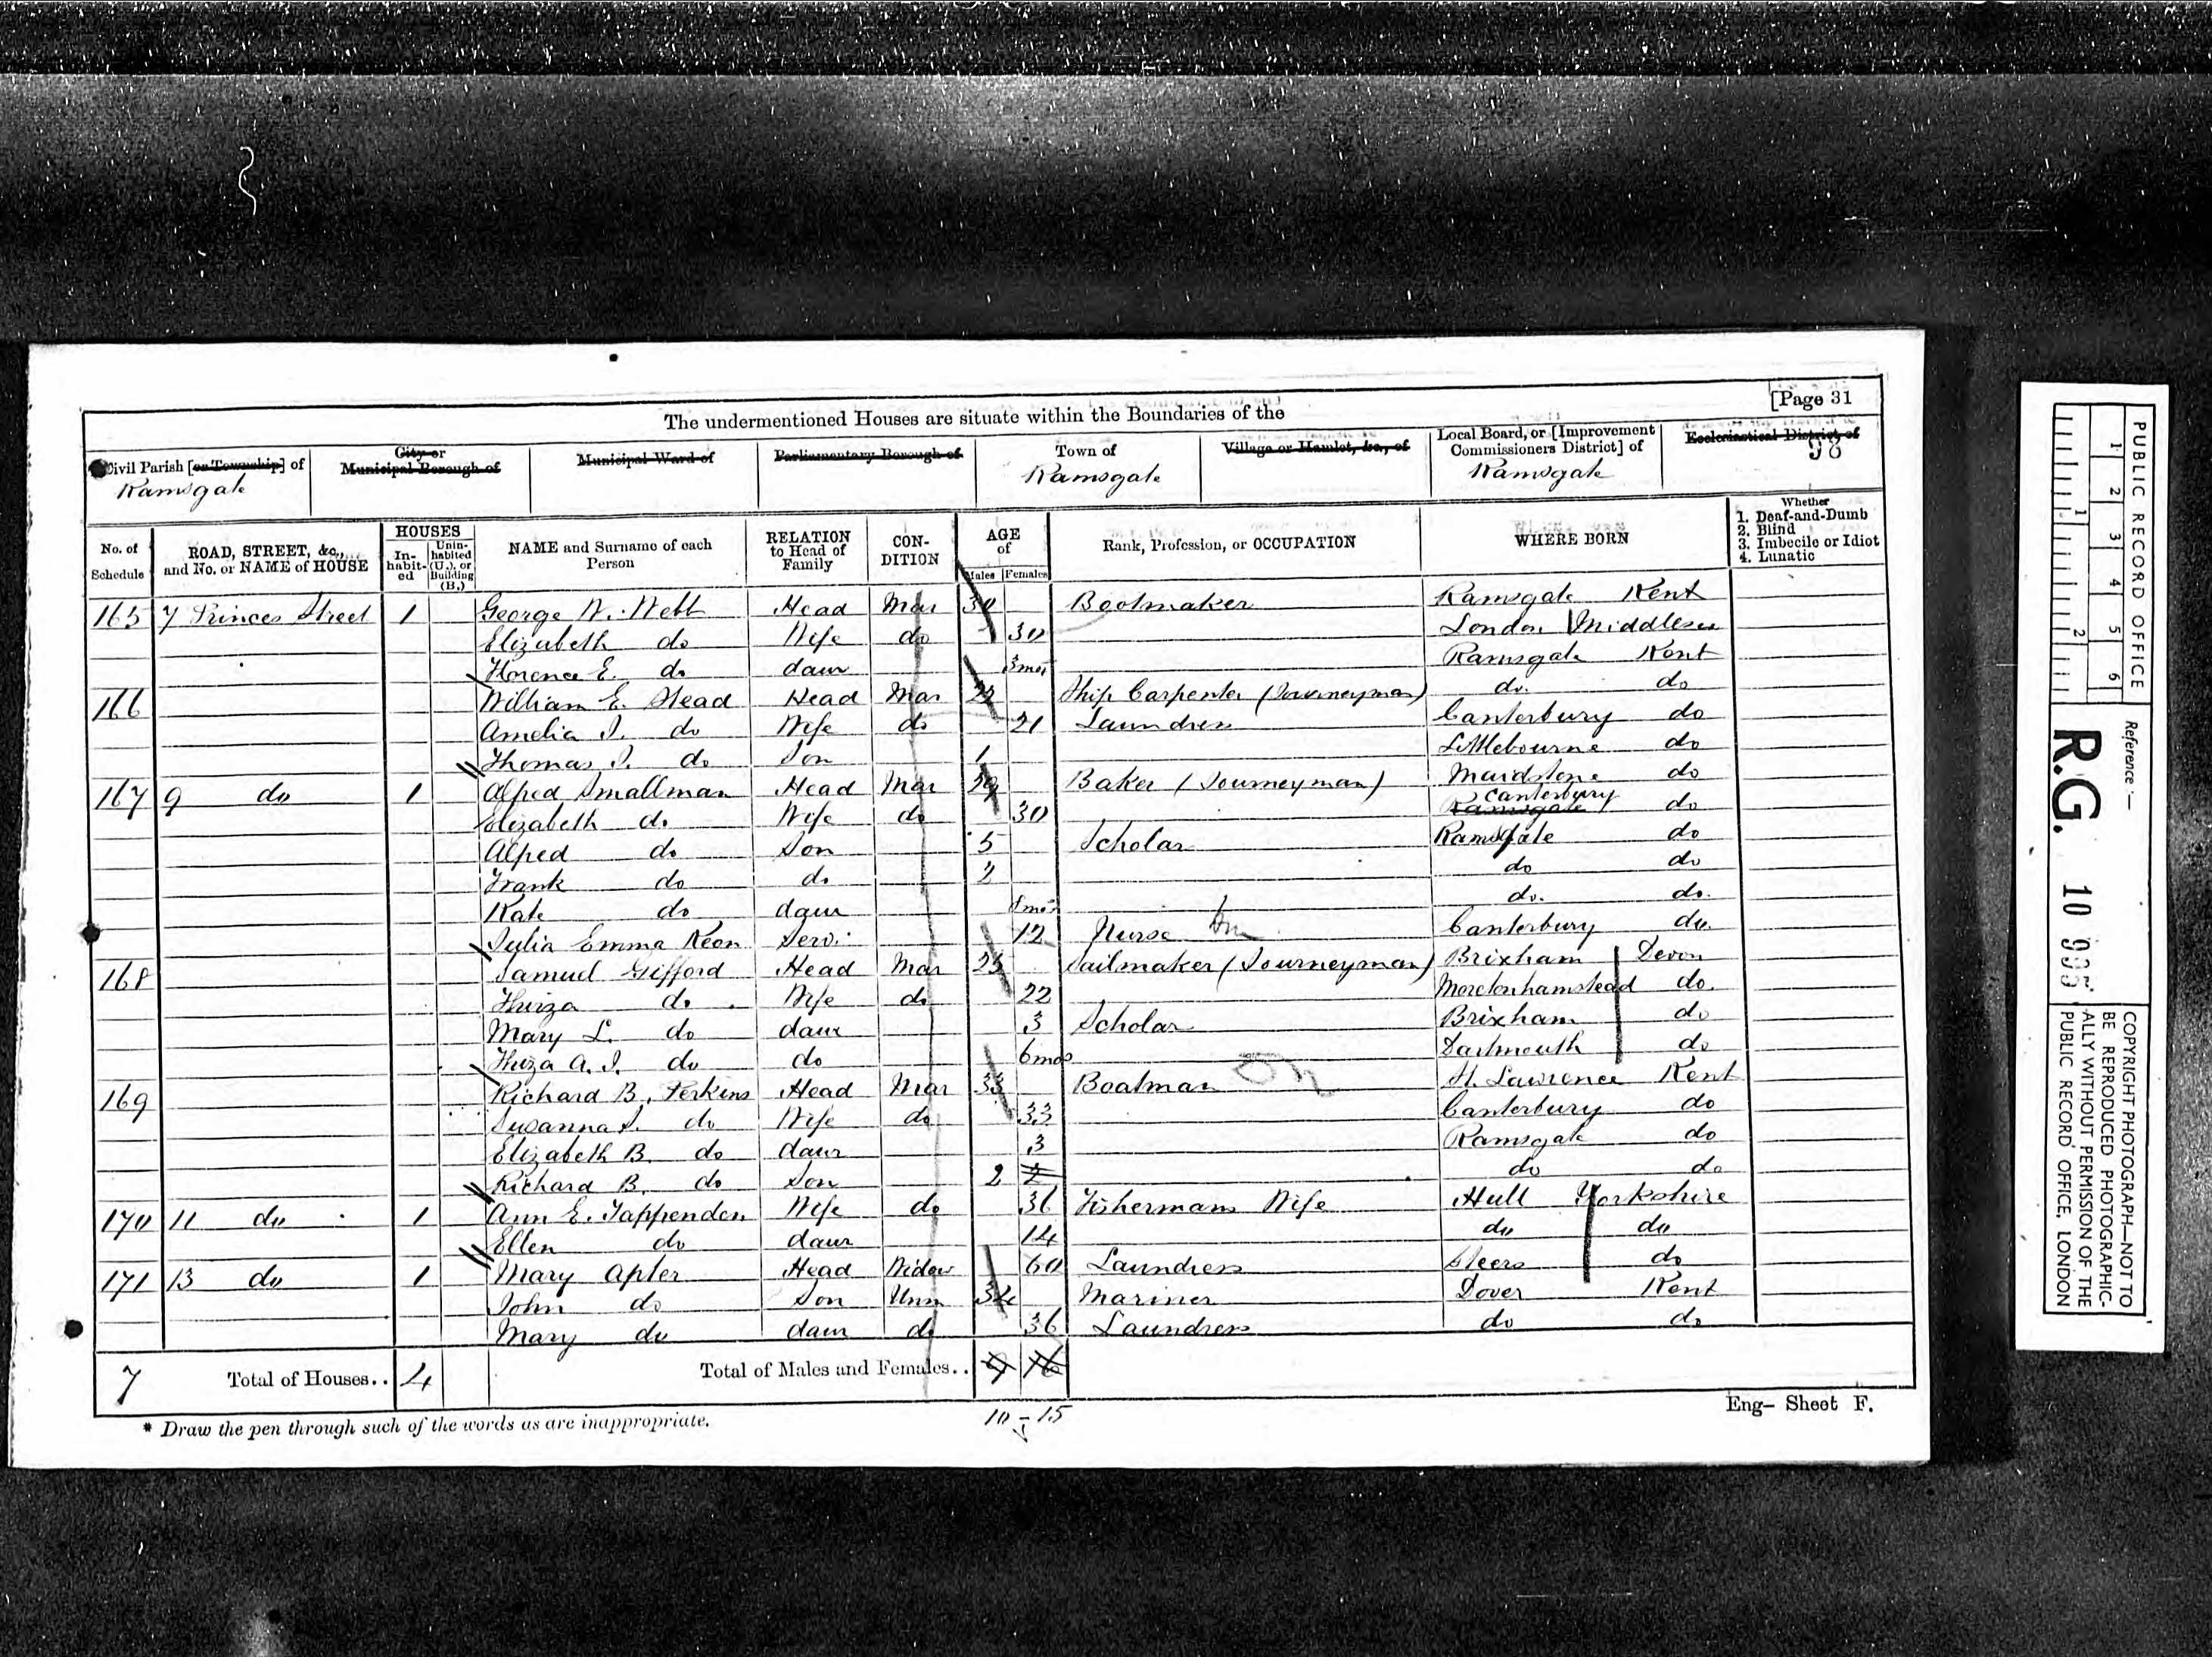 [Page 31
The undermentioned Houses are situate within the Boundaries of the
Civil Parish [or Township] of Ramsgate
City or Municipal Borough of
Municipal Ward of
Parliamentary Borough of
Town of Ramsgate
Village or Hamlet, &c., of
Local Board, or [Improvement Commissioners District] of Ramsgate
Ecclesiastical District of
98
No. of Schedule
ROAD, STREET, &c., and No. or NAME of HOUSE
HOUSES
In-habit-ed
Unin-habited (U.), or Building (B.)
NAME and Surname of each Person
RELATION to Head of Family
CON-DITION
AGE of
Males Females
Rank, Profession, or OCCUPATION
WHERE BORN
Whether
1. Deaf-and-Dumb
2. Blind
3. Imbecile or Idiot
4. Lunatic
165 7 Princes Street 1 George W. Webb Head Mar 30 Bootmaker Ramsgate Kent
Elizabeth do Wife do 30 London Middlesex
Florence E. do daur 3mos Ramsgate Kent
166 William E. Stead Head Mar Ship Carpenter (Journeyman) do. do
Amelia J. do Wife do 21 Laundress Canterbury do
Thomas J. do Son 1 Littlebourne do
167 9 do 1 Alfred Smallman Head Mar 39 Baker (Journeyman) Maidstone do
Elizabeth do Wife do 30 Ramsgate Canterbury do
Alfred do Son 5 Scholar Ramsgate do
Frank do do 2 do do
Kate do daur 8mos do. do.
Julia Emma Keen Serv. 12 Nurse Dm Canterbury do.
168 Samuel Gifford Head Mar 25 Sailmaker (Journeyman) Brixham Devon
do. Wife do 22 Moretonhamstead do.
Mary L. do daur 3 Scholar Brixham do
A. J. do do 6mos Dartmouth do
169 Richard B. Perkins Head Mar 33 Boatman St. Lawrence Kent
Susanna S. do Wife do 33 Canterbury do
Elizabeth B. do daur 3 Ramsgate do
Richard B. do Son 2 2 do do
170 11 do 1 Ann E. Tappenden Wife do 36 Fishermans Wife Hull Yorkshire
Ellen do daur 14 do do
171 13 do 1 Mary Apter Head Widow 60 Laundress do
John do Son Unm 34 Mariner Dover Kent
Mary do daur do 36 Laundress do do
7 Total of Houses.. 4 Total of Males and Females.. 9 16
10 - 15
* Draw the pen through such of the words as are inappropriate.
Eng- Sheet F.
PUBLIC RECORD OFFICE
1 2 3 4 5 6
1 2
Reference:-
R.G. 10 995
COPYRIGHT PHOTOGRAPH—NOT TO
BE REPRODUCED PHOTOGRAPHIC-
ALLY WITHOUT PERMISSION OF THE
PUBLIC RECORD OFFICE, LONDON